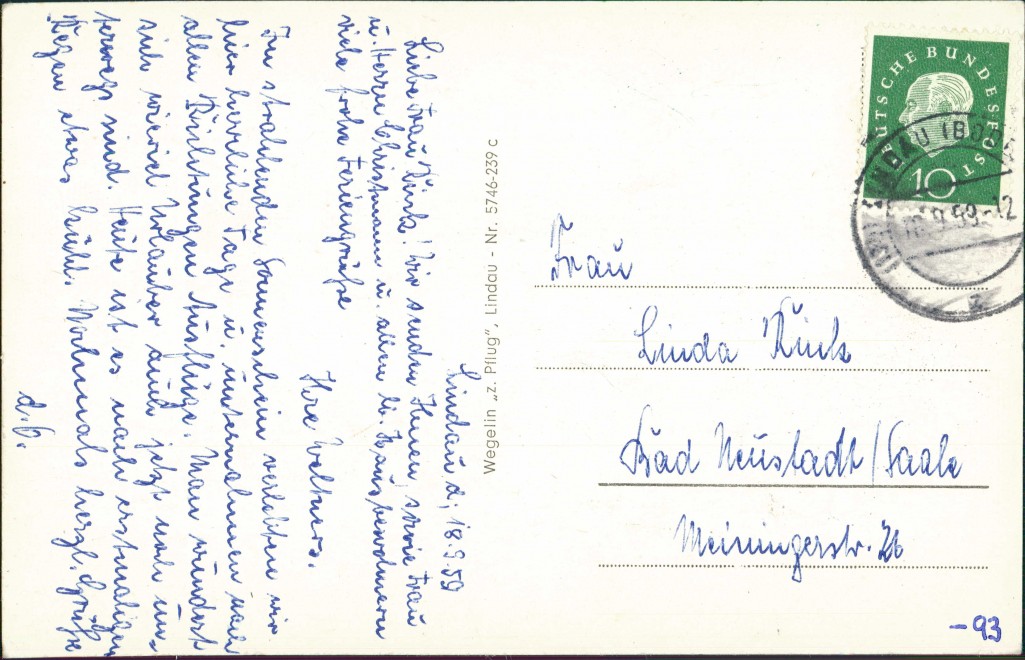 Lindau d, 18.9.59
Liebe Frau Kück! Wir senden Ihnen, sowie Frau
u. Herrn Christmann u. allen lb. Hausbewohnern
viele frohe Feriengrüße
Ihre Weltners.
Im strahlenden Sonnenschein verlebten wir
hier herrliche Tage u. unternahmen nach
allen Richtungen Ausflüge. Man wundert
sich wieviel Urlauber auch jetzt noch un-
terwegs sind. Heute ist es nach erstmaligem
Regen etwas kühl. Nochmals herzl. Grüße
d. O.
Wegelin „z. Pflug", Lindau - Nr. 5746-239 c
DEUTSCHE BUNDESPOST
10
LINDAU (BOD
18.9.59.-12
Frau
Linda Kück
Bad Neustadt/Saale
Meiningerstr. 26
-93